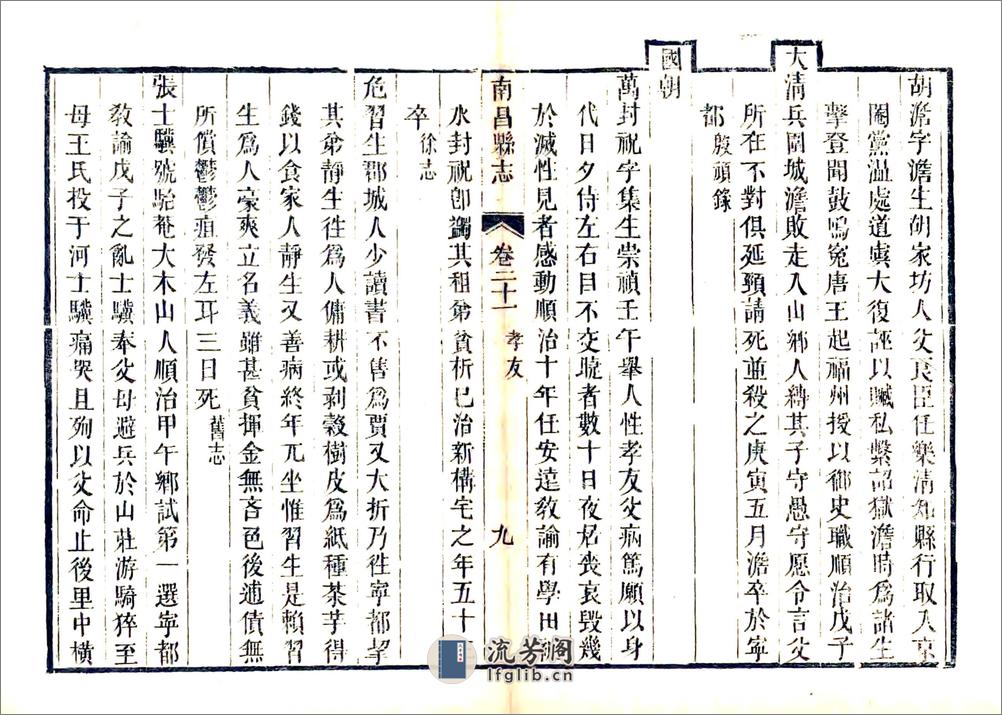 胡澹字澹生胡家坊人父良臣任樂清知縣行取入京
閹黨溫處道虞大復誣以贓私繫詔獄澹時爲諸生
擊登聞鼓鳴冤唐王起福州授以御史職順治戊子
大清兵圍城澹敗走入山鄉人縛其子守愚守愿令言父
所在不對俱延頸請死並殺之庚寅五月澹卒於寧
都 殷頑錄
國朝
萬封祝字集生崇禎壬午舉人性孝友父病篤願以身
代日夕侍左右目不交睫者數十日夜居喪哀毀幾
於滅性見者感動順治十年任安遠敎諭有學田
南昌縣志 卷二十一 孝友 九
水封祝卽蠲其租弟貧析已治新構宅之年五十
卒 徐志
危習生郡城人少讀書不售爲賈又大折乃徃寧都挈
其弟靜生徃爲人傭耕或剥榖樹皮爲紙種茶芋得
錢以食家人靜生又善病終年兀坐惟習生是賴習
生爲人豪爽立名義雖甚貧揮金無吝色後逋債無
所償鬱鬱疽發左耳三日死 舊志
張士驥號駘菴大木山人順治甲午鄉試第一選寧都
敎諭戊子之亂士驥奉父母避兵於山莊游騎猝至
母王氏投于河士驥痛哭且殉以父命止後里中橫
流芳阁
lfglib.cn